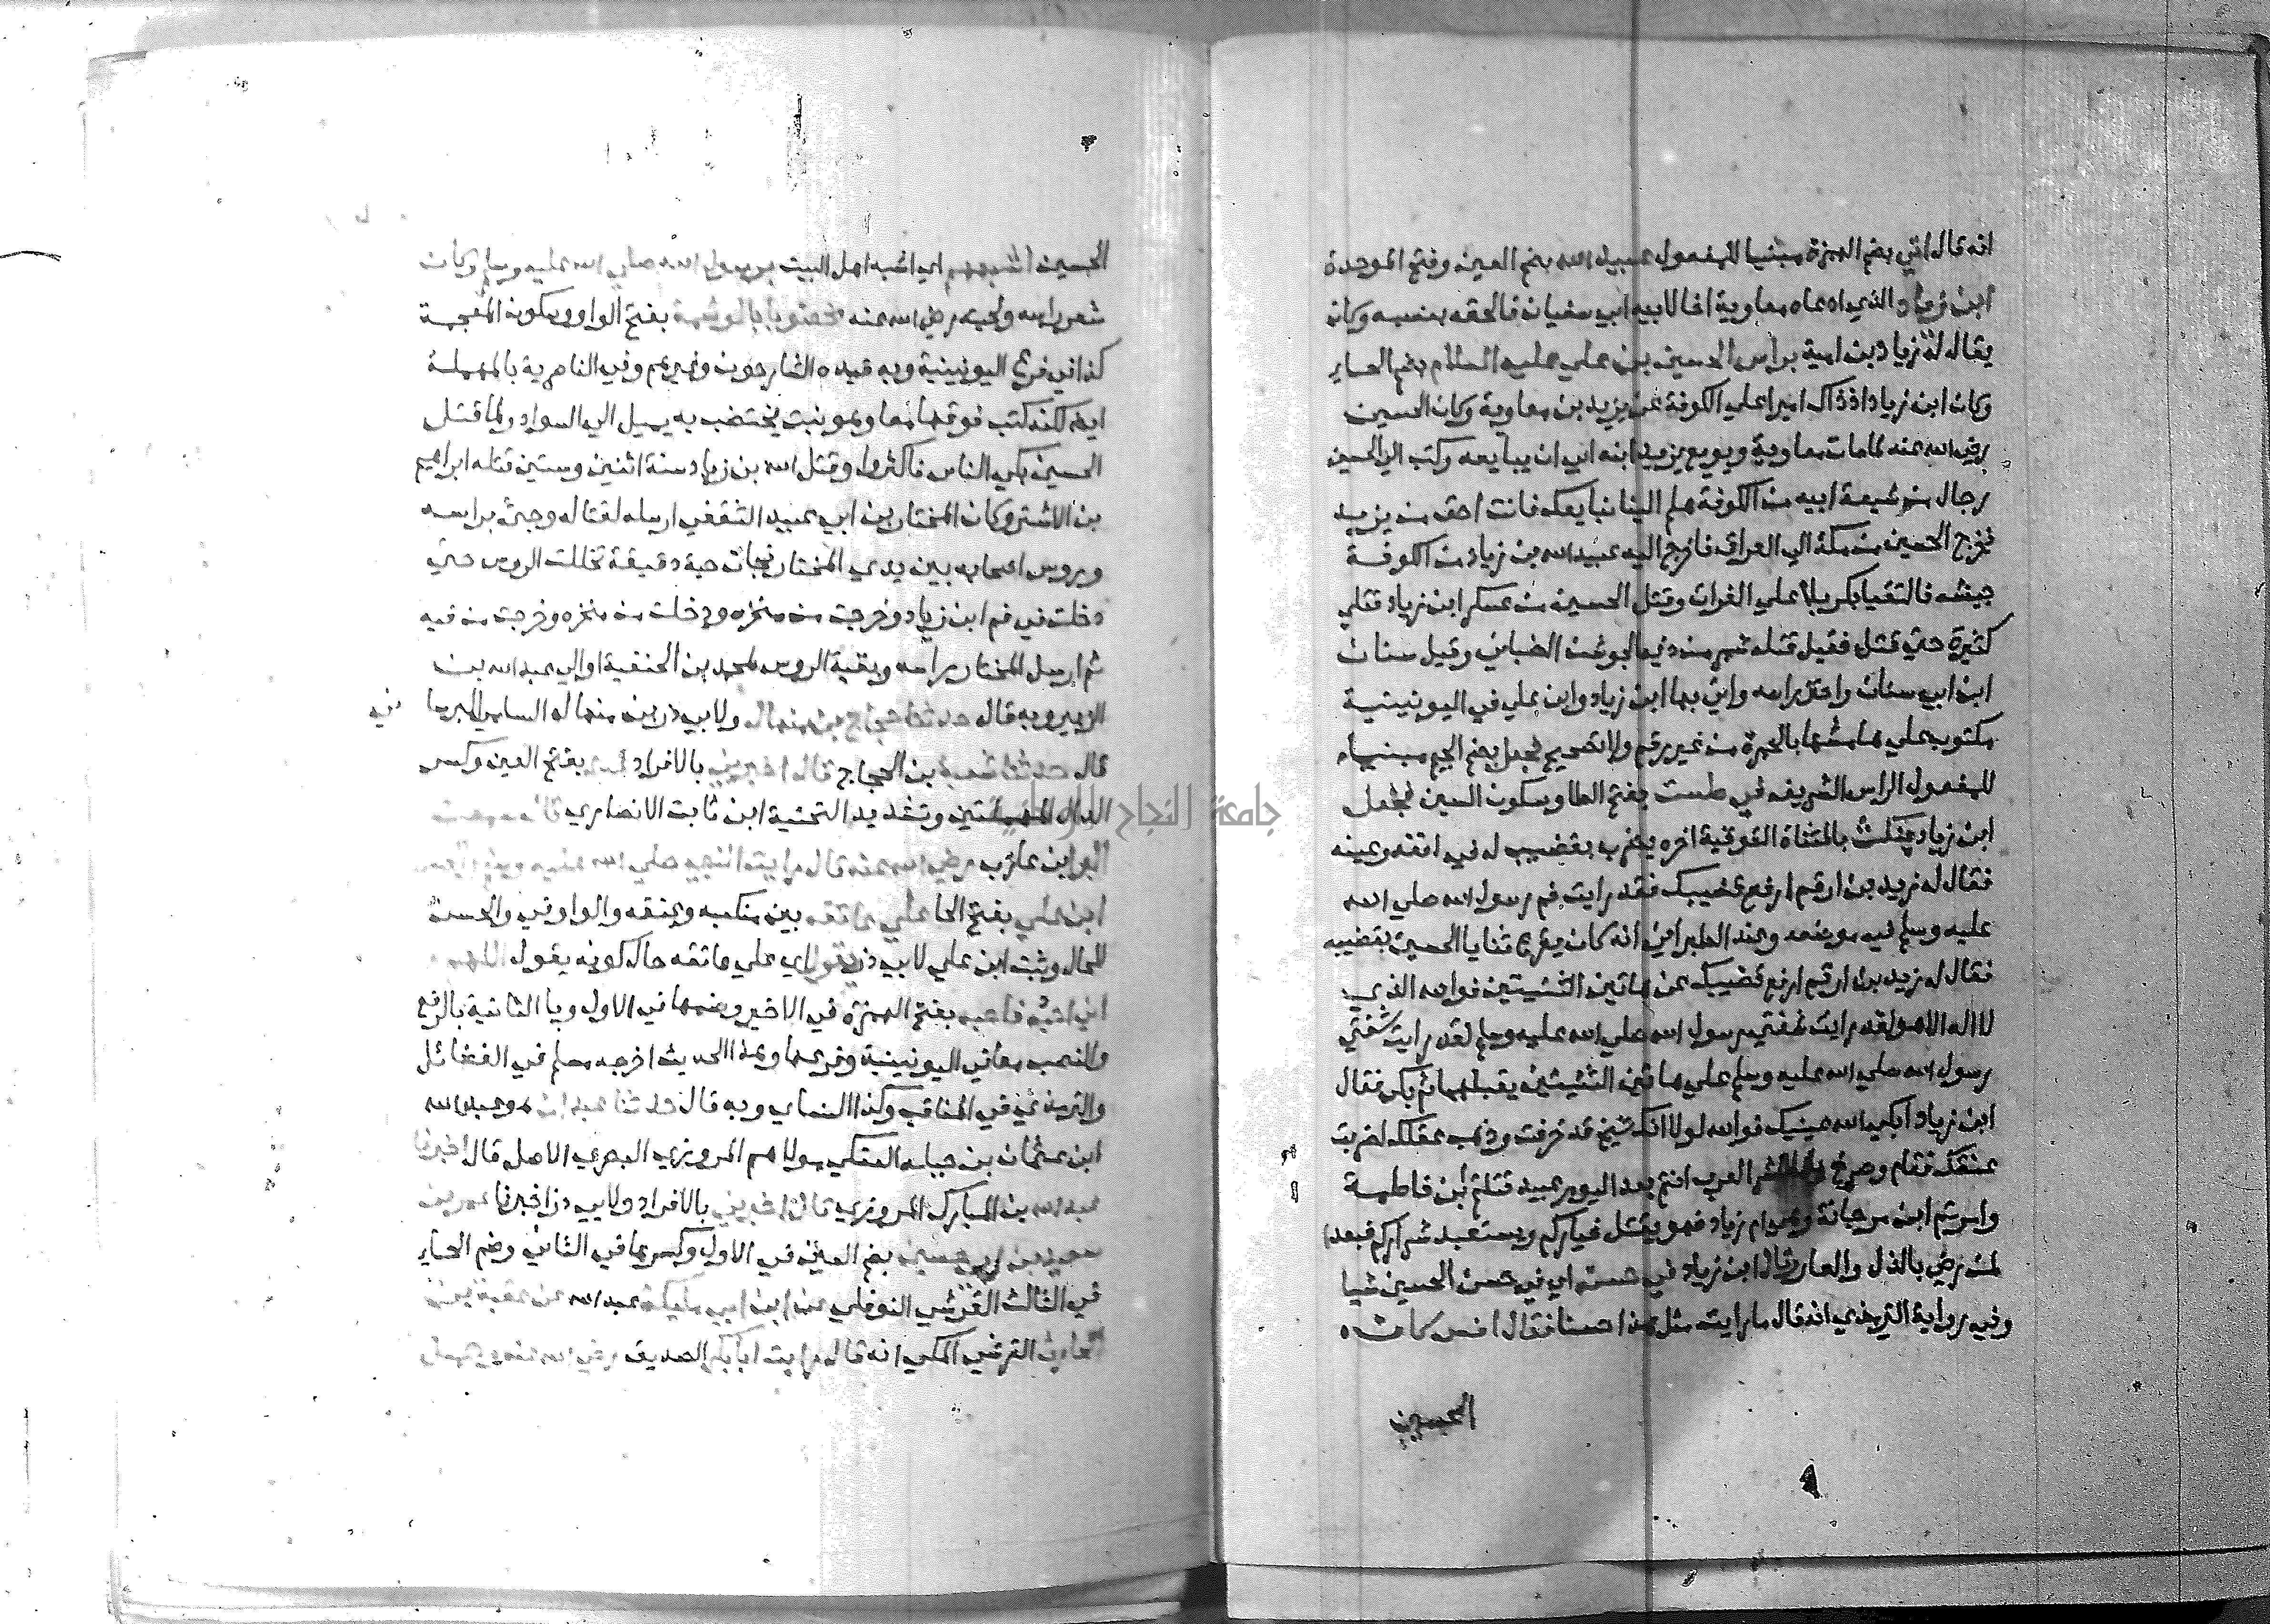 انه قال اتي بضم الهمزة مبنيا للمفعول عبيد الله بضم العين وفتح الموحدة
ابن زياد الذي ادعاه معاوية اخا لابيه ابي سفيان فالحقه بنسبه وكان
يقال له زياد بن امية براس الحسين بن علي عليه السلام بضم الحاء
وكان ابن زياد اذذاك اميرا علي الكوفة عن يزيد بن معاوية وكان الحسين
رضي الله عنه لما مات معاوية وبويع يزيد ابنه ابي ان يبايعه وكتب الي الحسين
رجال من شيعة ابيه من الكوفة هلم الينا نبايعك فانت احق من يزيد
فخرج الحسين من مكة الي العراق فاخرج اليه عبيد الله بن زياد من الكوفة
جيشه فالتقيا بكربلا علي الفرات وقتل الحسين من عسكر ابن زياد قتلي
كثيرة حتي قتل فقيل قتله شمر بن ذي الجوشن الضبابي وقيل سنان
ابن ابي سنان واحتز راسه واتي بها ابن زياد وابن علي في اليونينية
مكتوب علي هامشها بالحمرة من غير رقم ولا تصحيح فجعل بضم الجيم مبنيا
للمفعول الراس الشريف في طست بفتح الطا وسكون السين فجعل
ابن زياد ينكت بالمثناة الفوقية اخره يضرب بقضيب له في انفه وعينه
فقال له زيد بن ارقم ارفع قضيبك فقد رايت فم رسول الله صلي الله
عليه وسلم في موضعه وعند الطبراني انه كان يقرع ثنايا الحسين بقضيبه
فقال له زيد بن ارقم ارفع قضيبك عن هاتين الثنيتين فوالله الذي
لا اله الا هو لقد رايت شفتي رسول الله صلي الله عليه وسلم لقد رايت شفتي
رسول الله صلي الله عليه وسلم علي هاتين الثنيتين يقبلهما ثم بكي فقال
ابن زياد ابكي الله عينيك فوالله لولا انك شيخ قد خرفت وذهب عقلك لضربت
عنقك فقام وصرخ يا معشر العرب انتم بعد اليوم عبيد قتلتم ابن فاطمة
وامرتم ابن مرجانة وهي ام زياد فهو يقتل خياركم ويستعبد شراركم فبعدا
لمن رضي بالذل والعار وقال ابن زياد في حسنه اي في حسن الحسين شيا
وفي رواية الترمذي انه قال ما رايت مثل هذا حسنا فقال انس كان
الحسين
الحسين اشبههم اي اشبه اهل البيت برسول الله صلي الله عليه وسلم وكان
شعر راسه ولحيته رضي الله عنه مخضوبا بالوشمة بفتح الواو وسكون المعجمة
كذا في فرع اليونينية وبه قيده الشارحون وغيرهم وفي الناصرية بالمهملة
ايضا كتب فوقها معا وهو نبت يختضب به يميل الي السواد ولما قتل
الحسين بكي الناس فاكثروا وقتل الله بن زياد سنة اثنين وستين قتله ابراهيم
بن الاشتر وكان المختار بن ابي عبيد الثقفي ارسله لقتاله وجيء براسه
وروس اصحابه بين يدي المختار فجات حية دقيقة تخللت الروس حتي
دخلت في فم ابن زياد وخرجت من منخره ودخلت من منخره وخرجت من فيه
ثم ارسل المختار براسه وبقية الروس لمحمد بن الحنفية او الي عبد الله بن
الزبير وبه قال حدثنا حجاج بن منهال ولابي ذر بن منهال
قال حدثنا شعبة بن الحجاج قال اخبرني بالافراد عدي بفتح العين وكسر
الدال المهملتين وتشديد التحتية ابن ثابت الانصاري قال سمعت
البرا بن عازب رضي الله عنه قال رايت النبي صلي الله عليه وسلم
ابن علي بفتح الحا علي عاتقه بين منكبه وعنقه والواو في والحسن
للحال وثبت ابن علي لابي ذر يقول اي علي عاتقه حال كونه يقول اللهم
اني احبه فاحبه بفتح الهمزة في الاخير وضمها في الاول ويا الثانية بالرفع
والنصب معا في اليونينية وفرعها وهذا الحديث اخرجه مسلم في الفضائل
والترمذي في المناقب وكذا النساي وبه قال حدثنا عبدان هو عبد الله
ابن عثمان بن جبلة العتكي مولاهم المروزي البصري الاصل قال اخبرنا
عبد الله بن المبارك المروزي قال اخبرني بالافراد ولابي ذر اخبرنا عمر بن
سعيد بن ابي حسين بضم العين في الاول وكسرها في الثاني وضم الحاء
في الثالث القرشي النوفلي عن ابن ابي مليكة عبد الله عن عقبة بن
الحارث القرشي المكي انه قال رايت ابا بكر الصديق رضي الله عنه
جامعة النجاح الوطنية